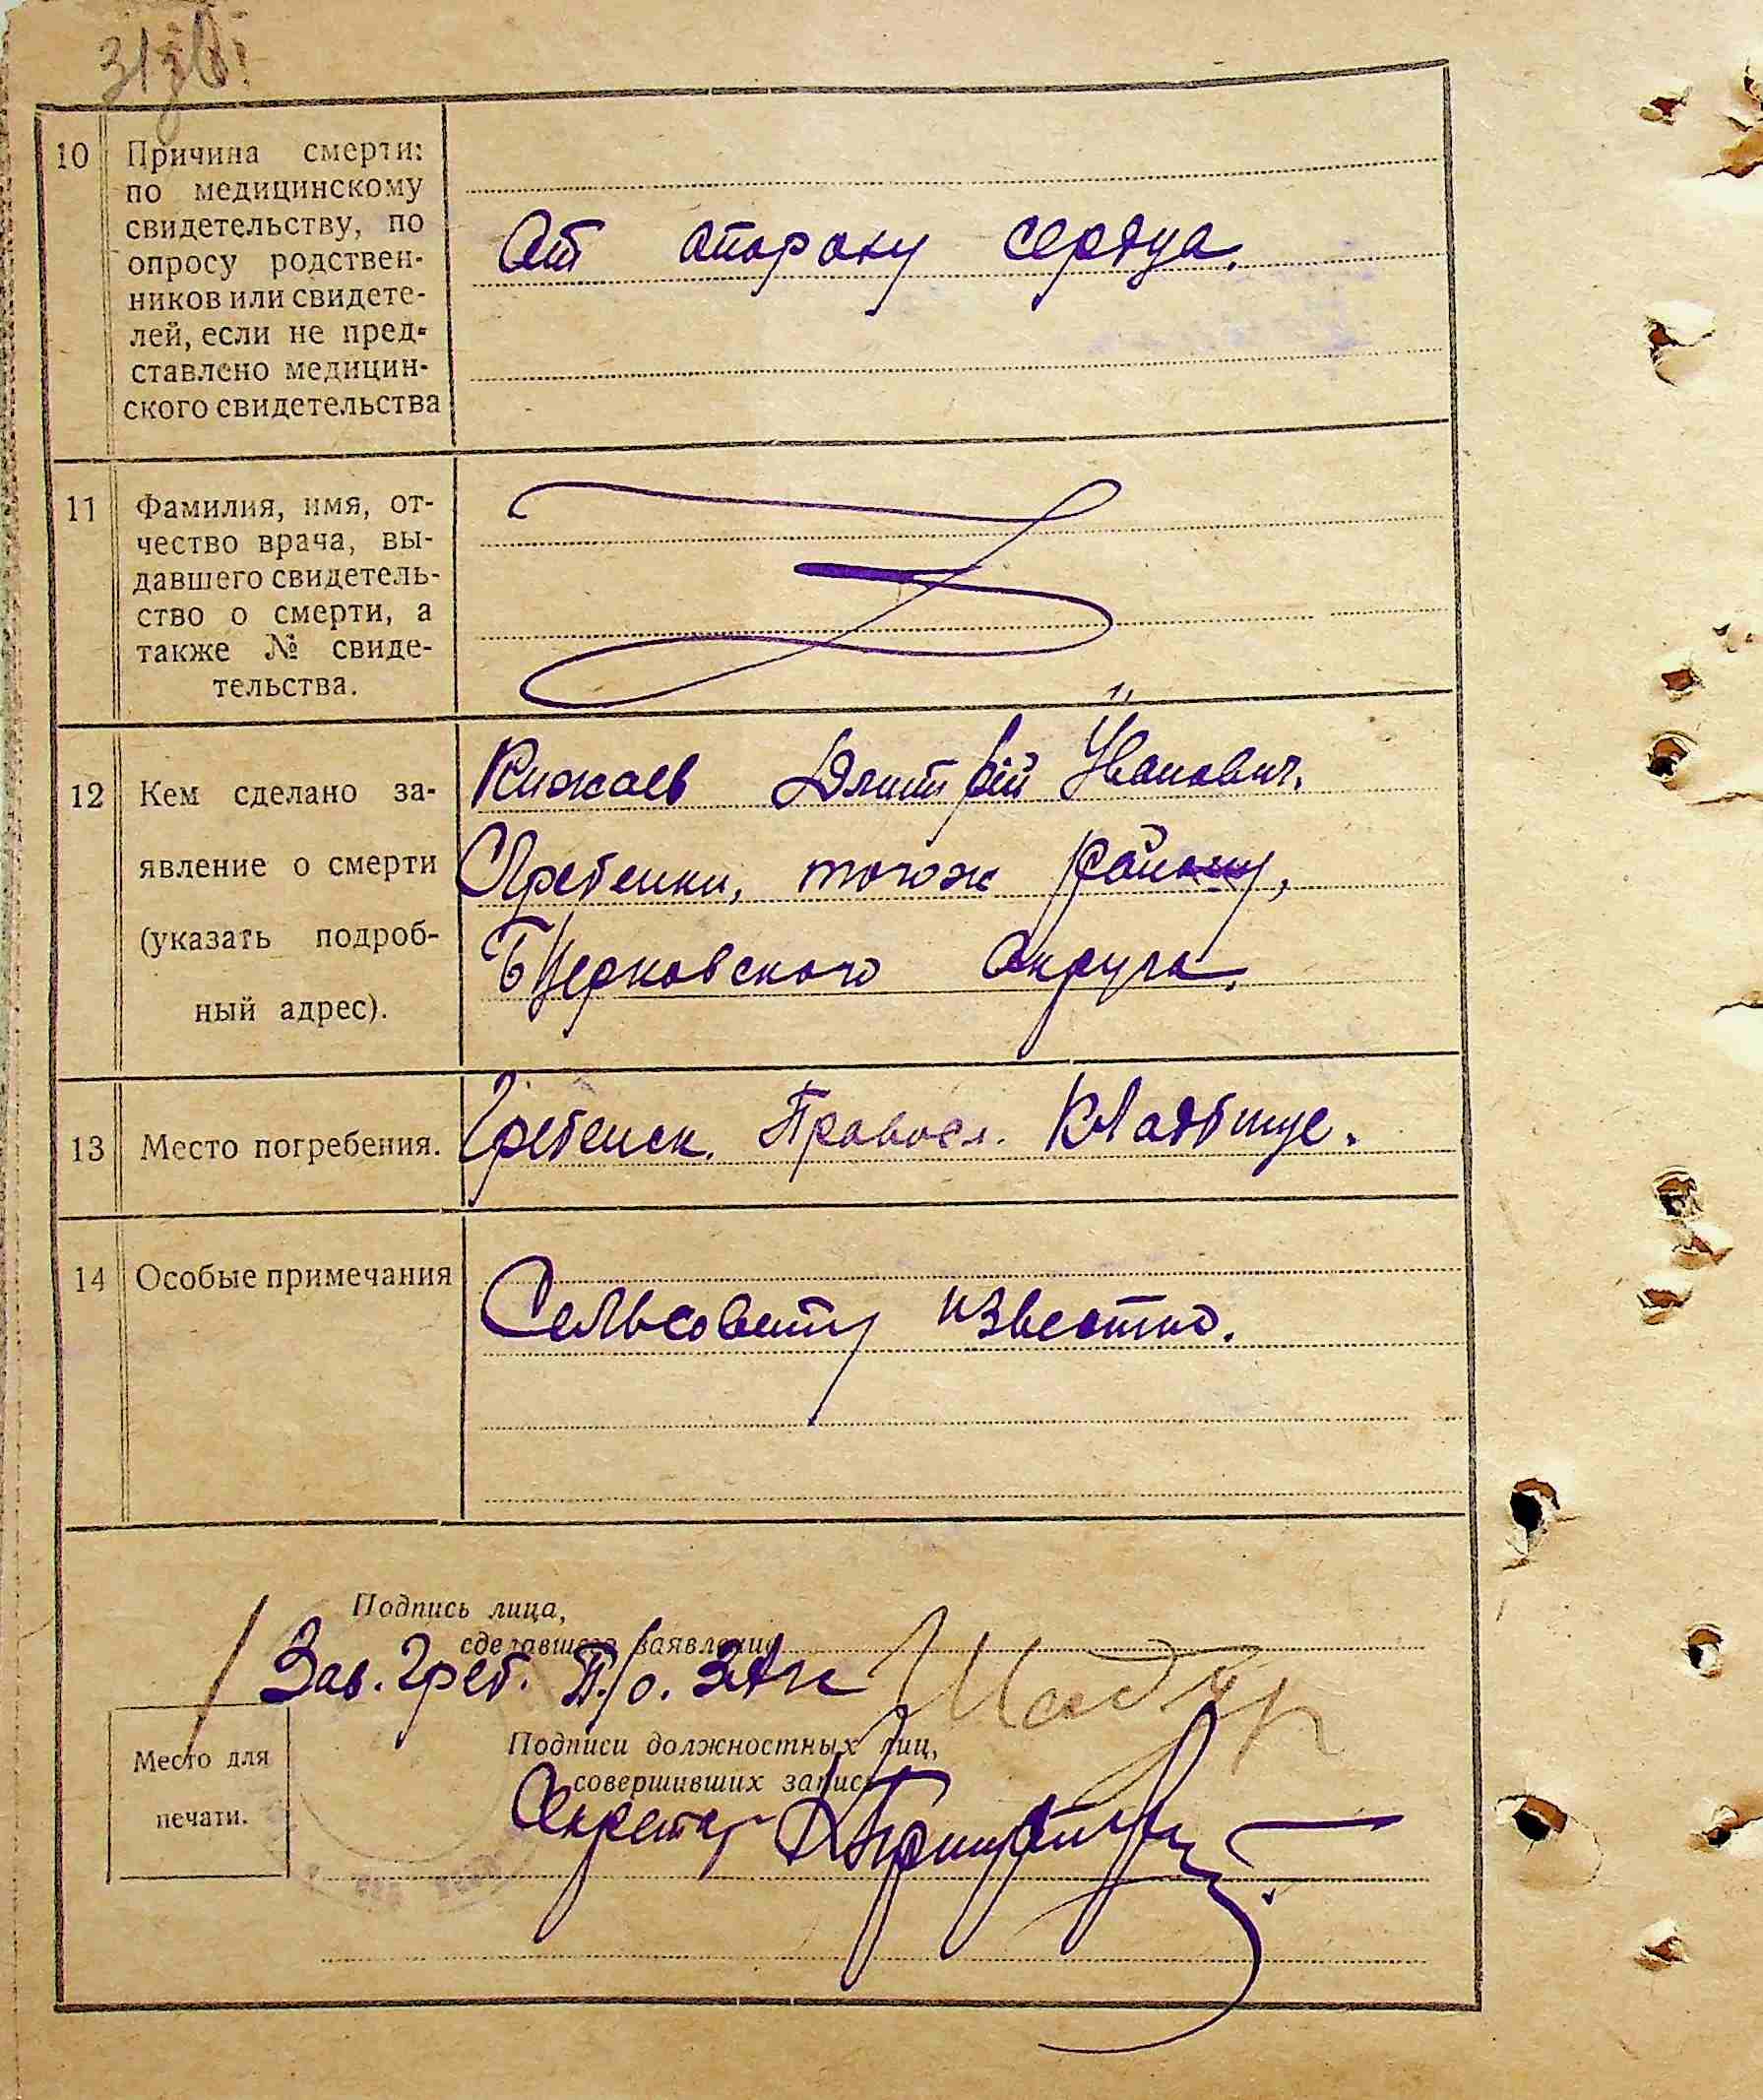 10 Причина смерти:
по медицинскому
свидетельству, по
опросу родствен-
ников или свидете-
лей, если не пред-
ставлено медицин-
ского свидетельства
От опороку сердца.
11 Фамилия, имя, от-
чество врача, вы-
давшего свидетель-
ство о смерти, а
также № свиде-
тельства.
12 Кем сделано за-
явление о смерти
(указать подроб-
ный адрес).
Кижаев Дмитрій Иванович.
Гребенки, тогож району,
БЦерковского Округа.
13 Место погребения.
Гребенск. Правосл. Кладбище.
14 Особые примечания
Сельсовету известно.
Подпись лица,
сделавшего заявление
Зав. Греб. П/о.
Место для
печати.
Подписи должностных лиц,
совершивших запись
Секретар